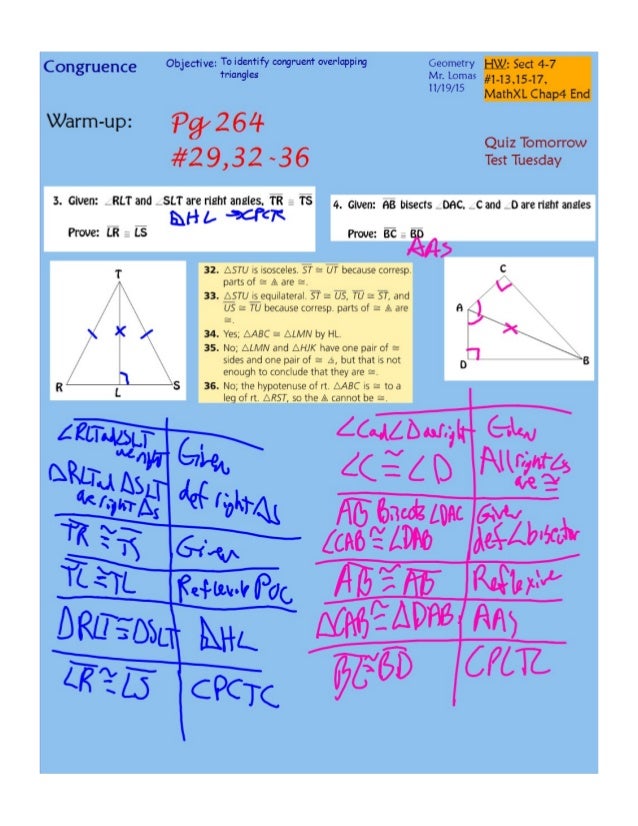 Congruence
Objective: To identify congruent overlapping
triangles
Geometry
Mr. Lomas
11/19/15
HW: Sect 4-7
#1-13,15-17,
MathXL Chap4 End
Warm-up:
Pg 264
#29,32-36
Quiz Tomorrow
Test Tuesday
3. Given: ∠RLT and ∠SLT are right angles, TR ≅ TS
ΔHL → CPCTC
Prove: LR ≅ LS
4. Given: AB bisects ∠DAC, ∠C and ∠D are right angles
Prove: BC ≅ BD
AAS
T
x
R
L
S
32. △STU is isosceles. ST ≅ UT because corresp.
parts of ≅ △s are ≅.
33. △STU is equilateral. ST ≅ US, TU ≅ ST, and
US ≅ TU because corresp. parts of ≅ △s are
≅.
34. Yes; △ABC ≅ △LMN by HL.
35. No; △LMN and △HJK have one pair of ≅
sides and one pair of ≅ ∠s, but that is not
enough to conclude that they are ≅.
36. No; the hypotenuse of rt. △ABC is ≅ to a
leg of rt. △RST, so the △s cannot be ≅.
C
A
x
D
B
∠RLT and ∠SLT
are right
Given
ΔRLT and ΔSLT
are right Δs
def right Δs
TR ≅ TS
Given
TL ≅ TL
Reflexive POC
ΔRLT ≅ ΔSLT
ΔHL
LR ≅ LS
CPCTC
∠C and ∠D are right
Given
∠C ≅ ∠D
All right ∠s
are ≅
AB Bisects ∠DAC
Given
∠CAB ≅ ∠DAB
def ∠ bisector
AB ≅ AB
Reflexive
ΔCAB ≅ ΔDAB
AAS
BC ≅ BD
CPCTC